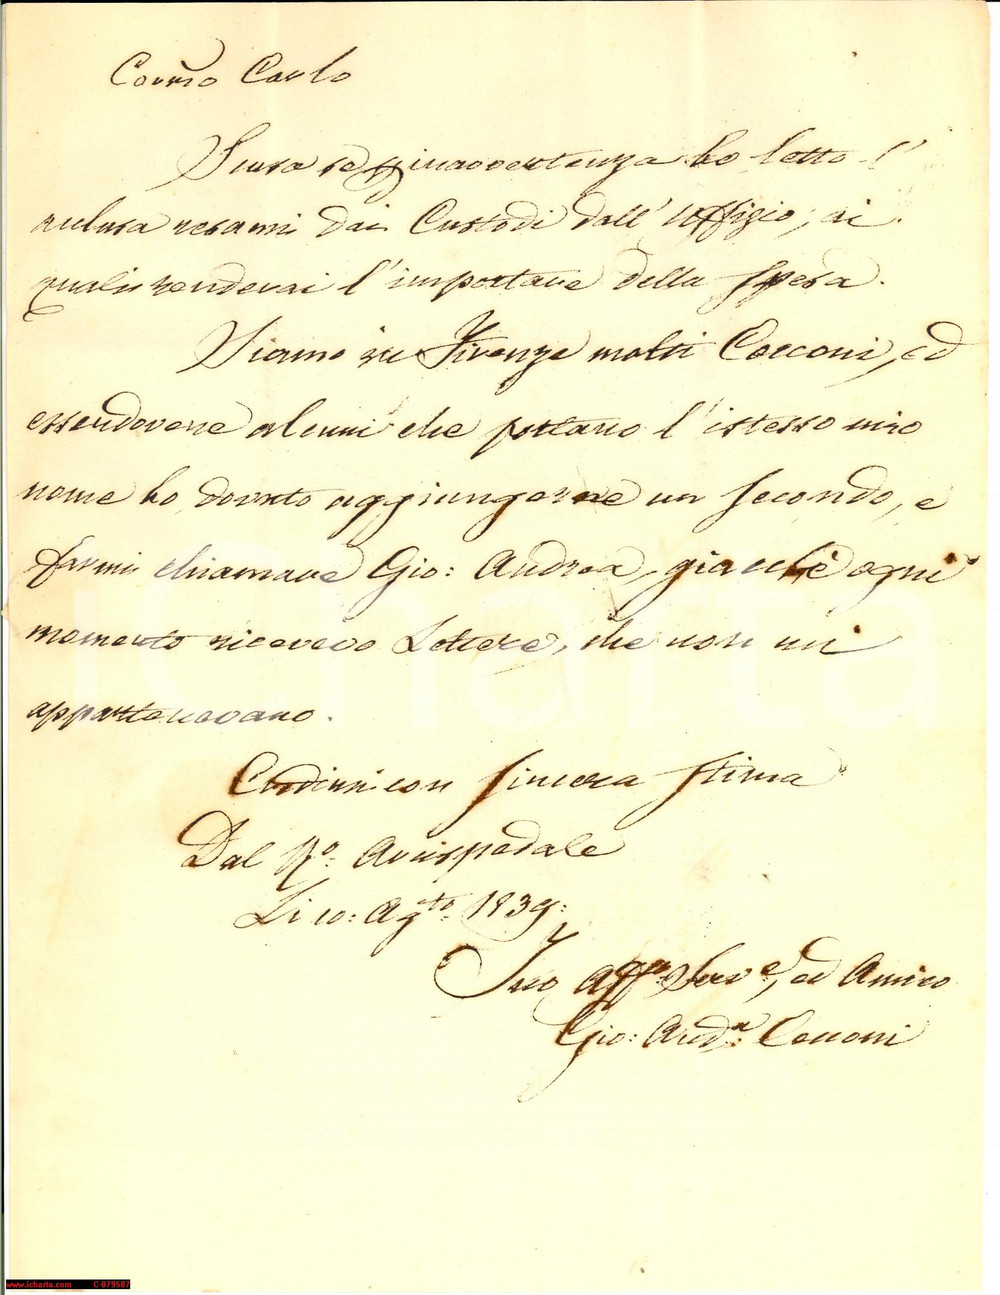 Car.mo Carlo
Scusa se inavvertenza ho letto l'
inclusa resami dai Custodi dell' Uffizio, ai
quali renderai l'importare della spesa.
Siamo in Firenze molti Cecconi, ed
essendovene alcuni che portano l'istesso mio
nome ho dovuto aggiungerne un secondo, e
farmi chiamare Gio: Andrea, giacchè ogni
momento ricevevo Lettere, che non mi
appartenevano.
Credimi con sincera stima
Dal R.o Arcispedale
Li 10: Ag.to 1839:
Tuo Aff.mo Serv.e, ed Amico
Gio: And.a Cecconi
icharta
www.icharta.com C-079587